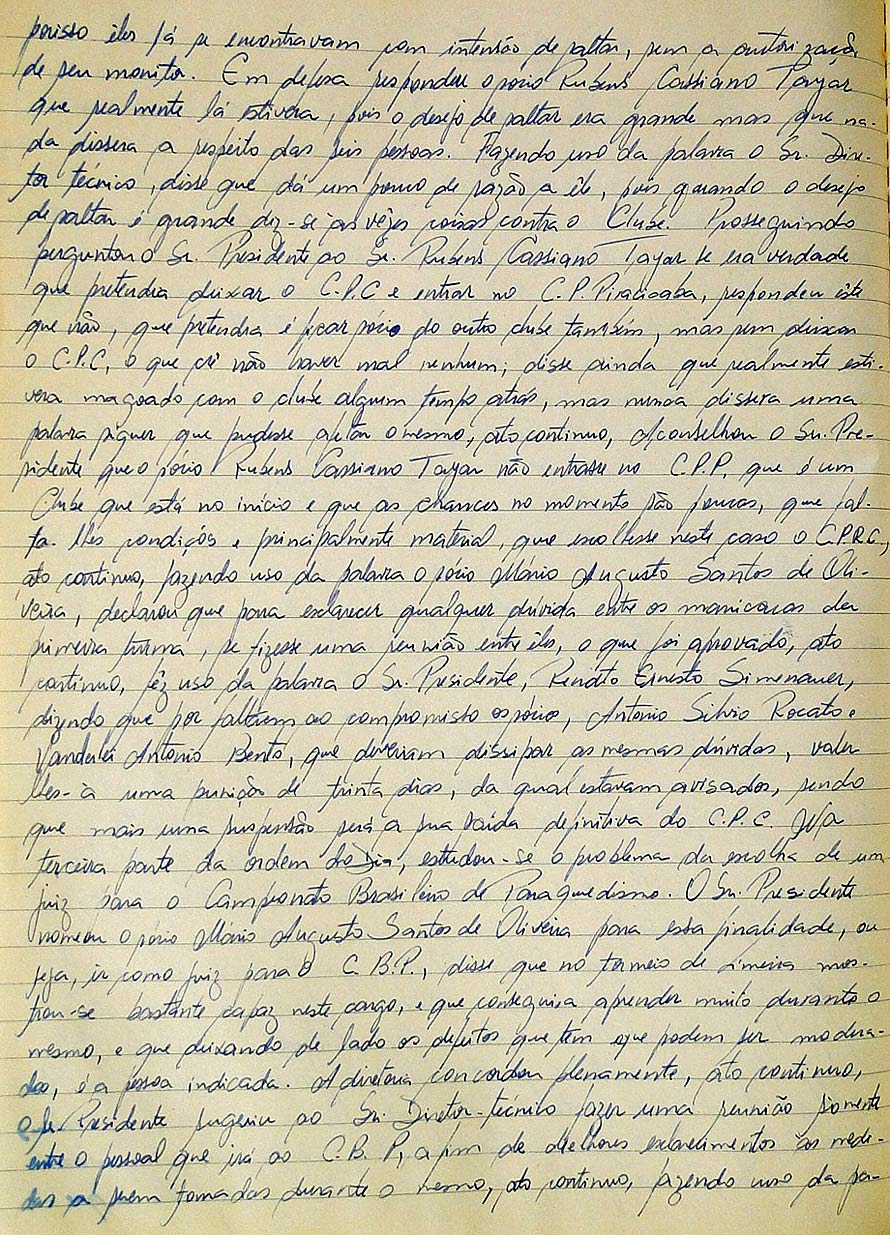 porisso êles lá se encontravam com intensão de saltar, sem a autorização
de seu monitor. Em defesa respondeu o sócio Rubens Cassiano Tayar
que realmente lá estivera, pois o desejo de saltar era grande mas que na-
da dissera a respeito das seis pessoas. Fazendo uso da palavra o Sr. Dire-
tor técnico, disse que dá um pouco de razão a êle, pois quando o desejo
de saltar é grande diz-se as vezes coisas contra o Clube. Prosseguindo
perguntou o Sr. Presidente ao Sr. Rubens Cassiano Tayar se era verdade
que pretendia deixar o C.P.C e entrar no C.P. Piracicaba, respondeu êste
que não, que pretendia é ficar sócio do outro clube também, mas sem deixar
o C.P.C, o que crê não haver mal nenhum; disse ainda que realmente esti-
vera magoado com o clube algum tempo atrás, mas nunca dissera uma
palavra siquer que pudesse afetar o mesmo, ato contínuo, Aconselhou o Sr. Pre-
sidente que o sócio Rubens Cassiano Tayar não entrasse no C.P.P. que é um
Clube que está no início e que as chances no momento são poucas, que fal-
ta-lhes condições e principalmente material, que escolhesse neste caso o C.P.R.C,
ato contínuo, fazendo uso da palavra o sócio Mário Augusto Santos de Oli-
veira, declarou que para esclarecer qualquer dúvida entre os manicacas da
primeira turma, se fizesse uma reunião entre êles, o que foi aprovado, ato
contínuo, fêz uso da palavra o Sr. Presidente, Renato Ernesto Simenauer,
dizendo que por faltarem ao compromisso os sócios, Antonio Silvio Rocato e
Vanderlei Antonio Bento, que deveriam dissipar as mesmas dúvidas, valer
lhes-a uma punição de trinta dias, da qual estavam avisados, sendo
que mais uma suspensão será a sua saída definitiva do C.P.C. Na
terceira parte da ordem do Dia, estudou-se o problema da escolha de um
juiz para o Campeonato Brasileiro de Paraquedismo. O Sr. Presidente
nomeou o sócio Mário Augusto Santos de Oliveira para essa finalidade, ou
seja, ir como juiz para o C.B.P., disse que no torneio de Limeira mos-
trou-se bastante capaz neste cargo, e que conseguira aprender muito durante o
mesmo, e que deixando de lado os defeitos que tem e que podem ser modera-
dos, é a pessoa indicada. A diretoria concordou plenamente, ato contínuo,
o Sr. Presidente sugeriu ao Sr. Diretor-técnico fazer uma reunião somente
entre o pessoal que irá ao C.B.P, a fim de melhores esclarecimentos às medi-
das a serem tomadas durante o mesmo, ato contínuo, fazendo uso da pa-